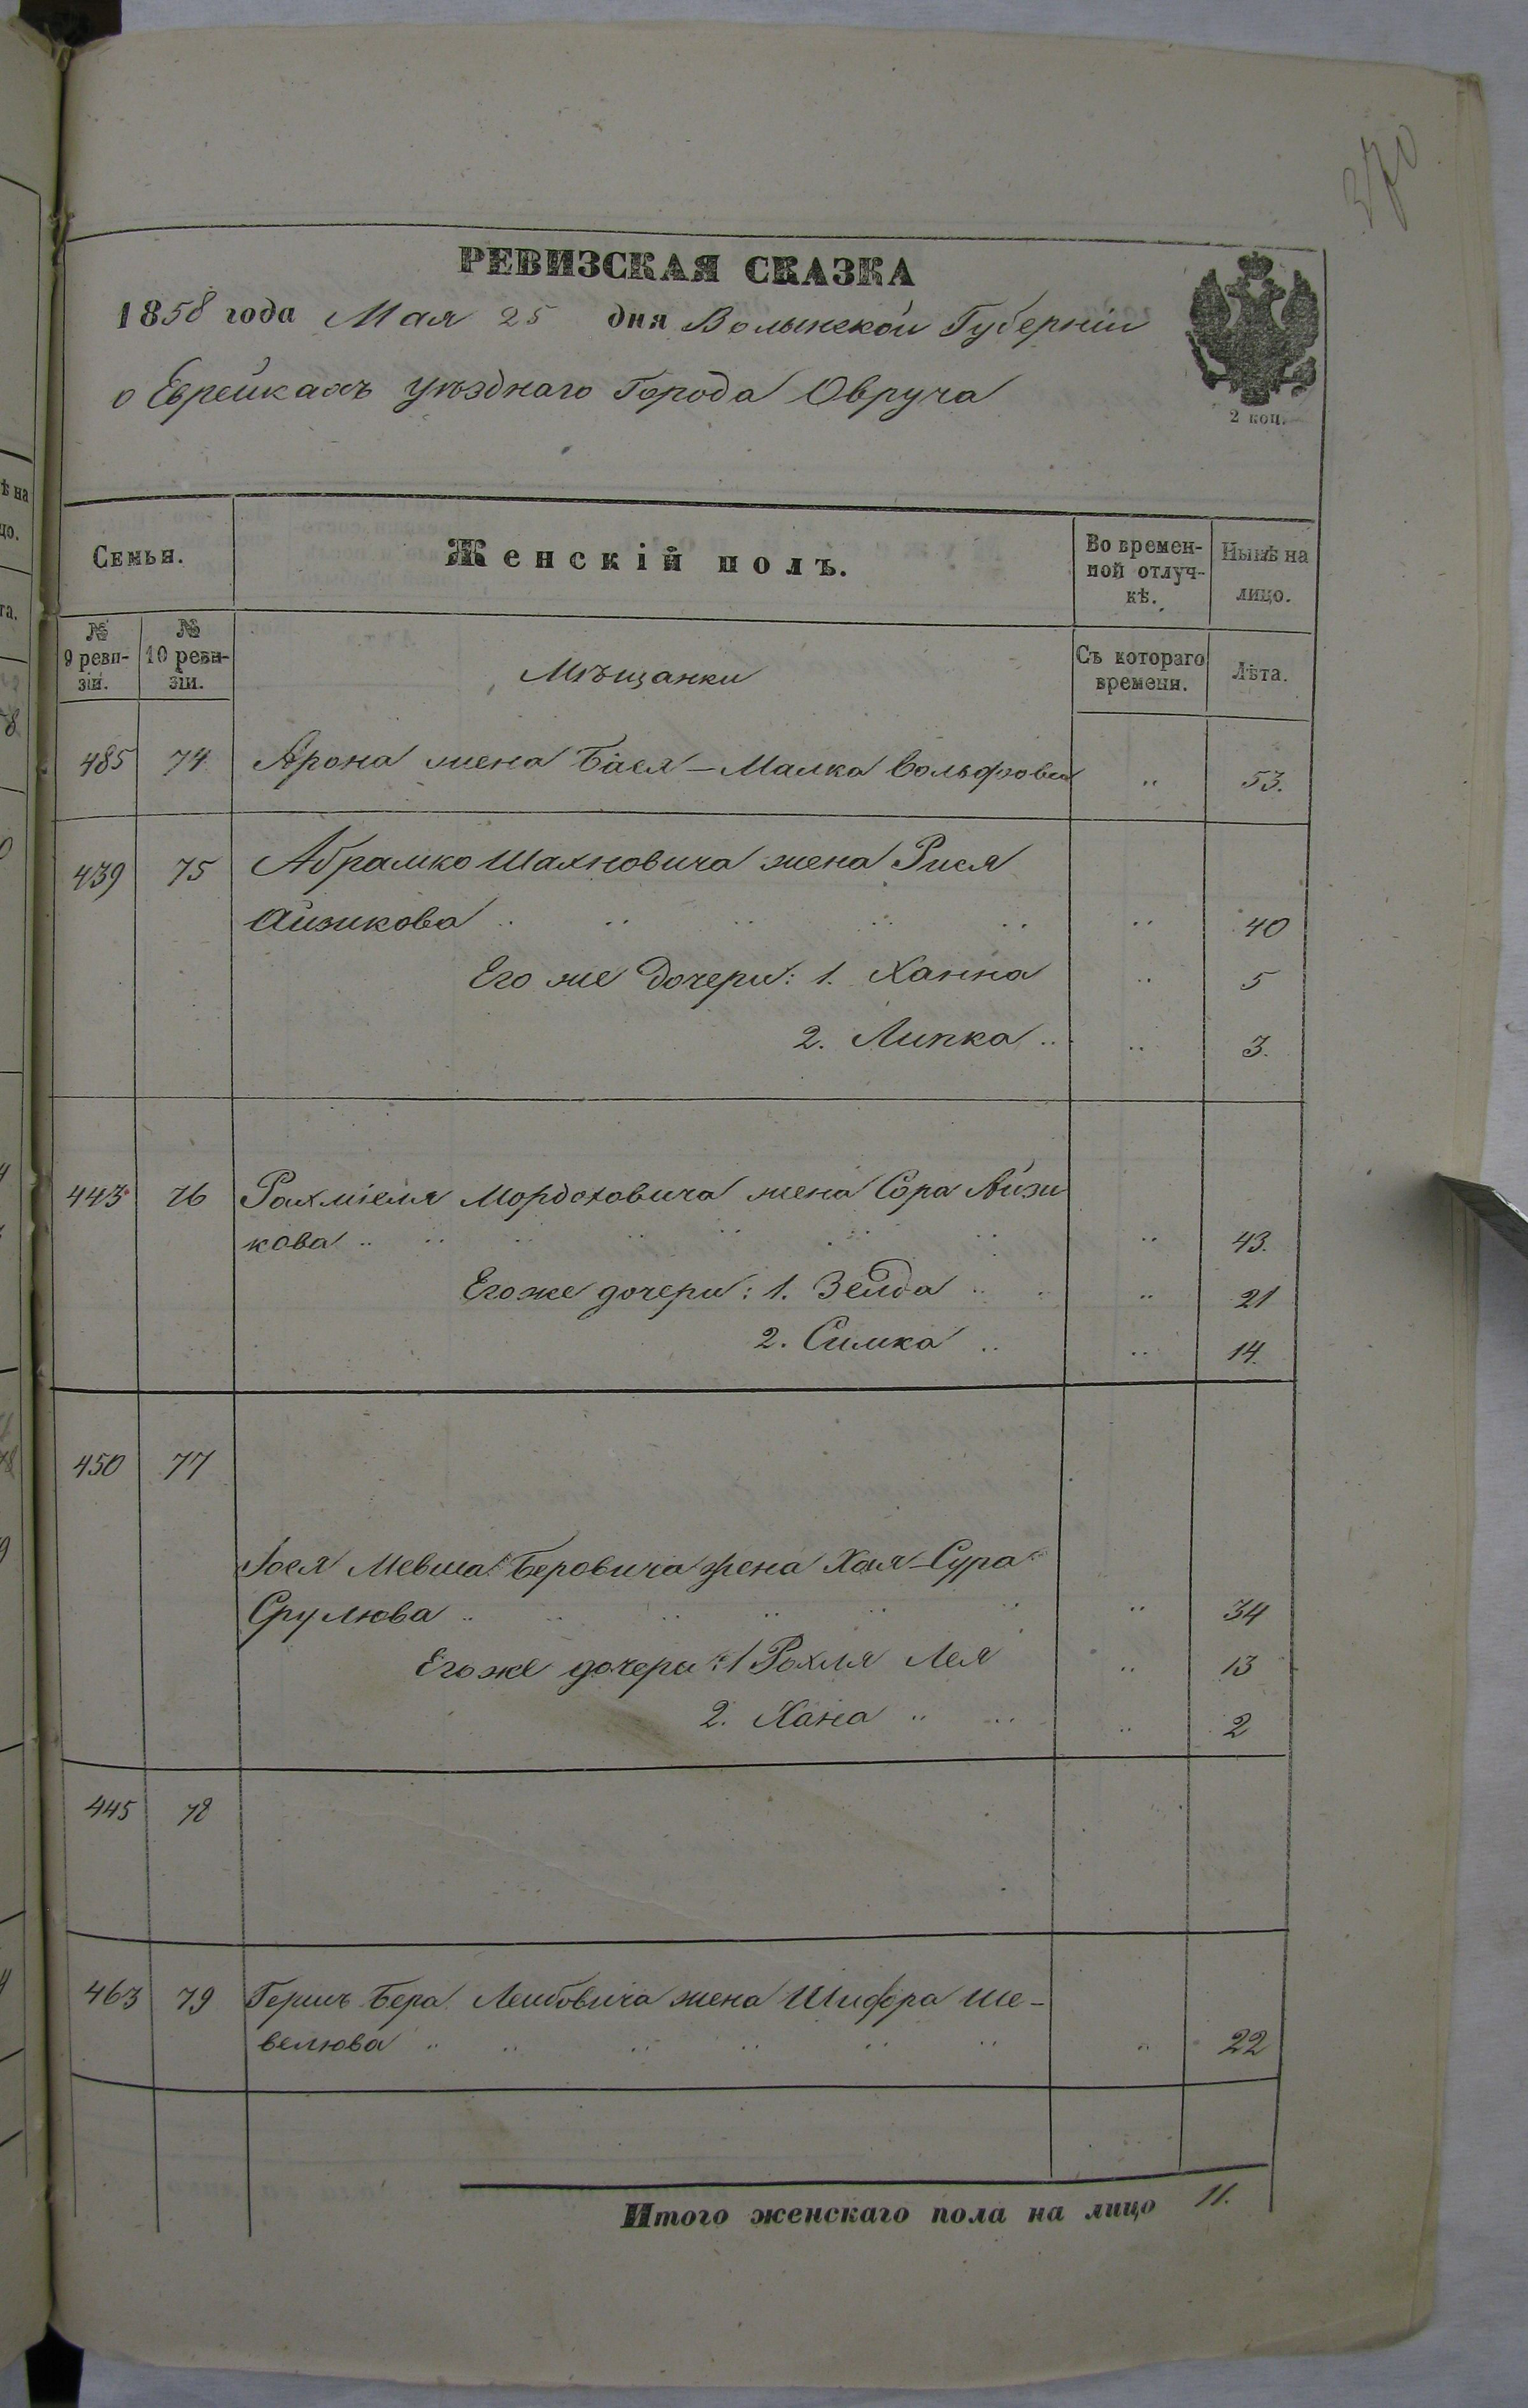 270
РЕВИЗСКАЯ СКАЗКА
1858 года Мая 25 дня Волынской Губерніи
о Еврейкахъ уѣзднаго Города Овруча
2 коп.
Семьи. Женскій полъ. Во времен-ной отлуч-кѣ. Нынѣ на лицо.
№ 9 реви-зіи. № 10 реви-зіи. Мѣщанки Съ котораго времени. Лѣта.
485 74 Арона жена Бася-Малка Вольфова " 53.
439 75 Абрамко Шахновича жена Рися
Айзикова " 40
Его же дочери: 1. Ханна " 5
2. Липка " 3.
443 76 Рахміеля Мордоховича жена Сора Айзи
кова " 43.
Его же дочери: 1. Зелда " 21
2. Симка " 14.
450 77
Іося Мевша Беровича жена Хая-Сура
Срулюва " 34
Его же дочери: 1 Рохля Лея " 13
2. Хана " 2
445 78
463 79 Гершъ Бера Лейбовича жена Шифра Ше-
велюва " 22
Итого женскаго пола на лицо 11.